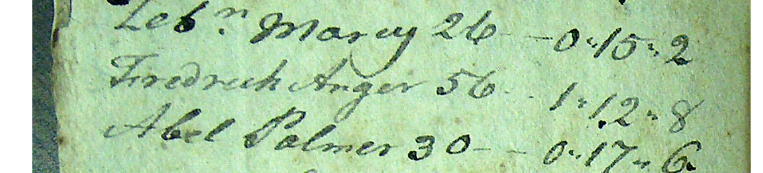 Zebn. Marcy 26 - - 0"15"2
Fredrich Anger 56 - - 1"12"8
Abel Palmer 30 - - 0"17"6